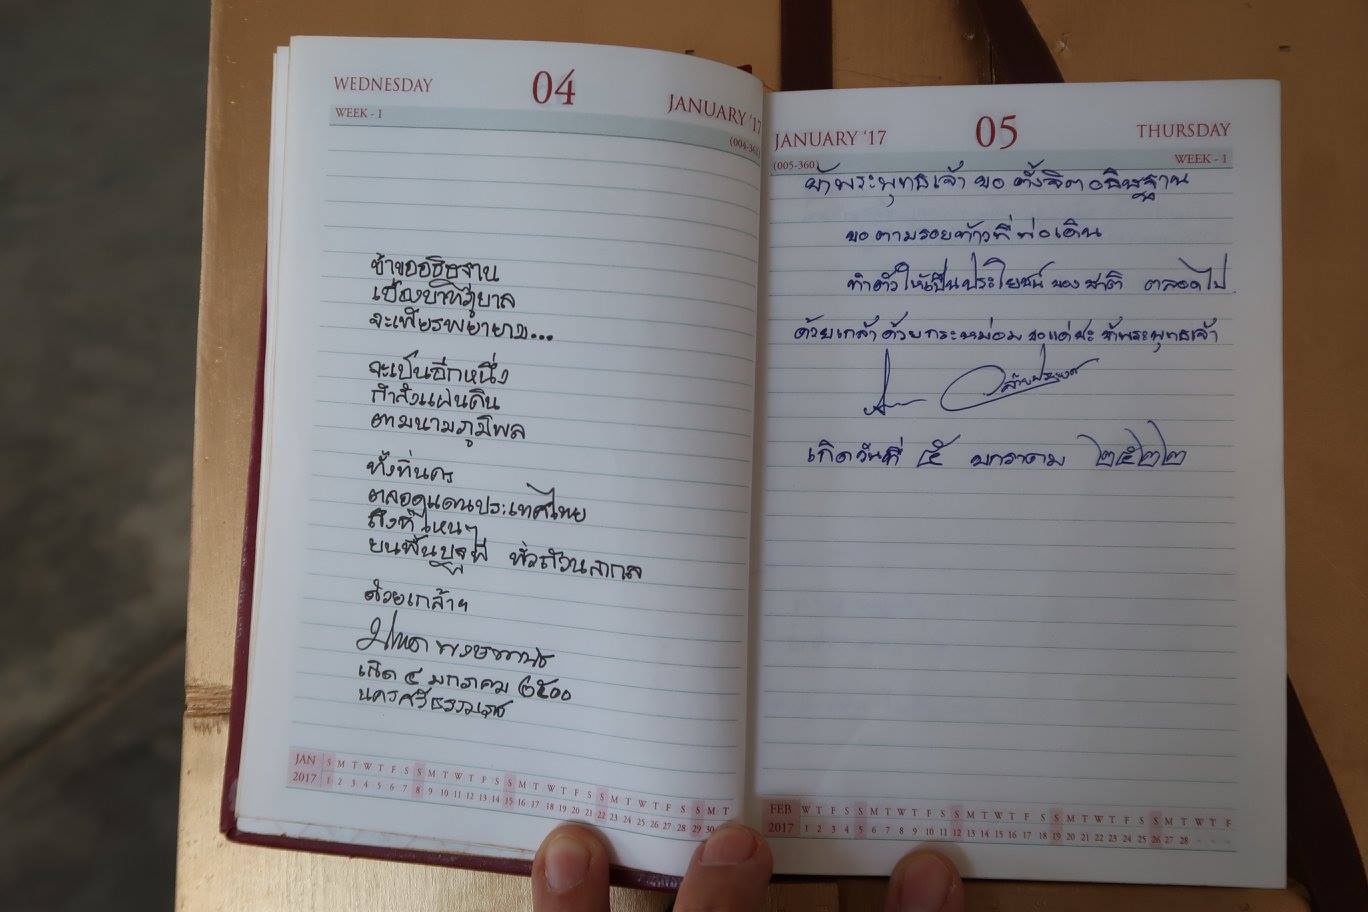 WEDNESDAY 04 JANUARY '17
WEEK - 1 (004-361)
ข้าขออธิษฐาน
เบื้องบาทภูบาล
จะเพียรพยายาม...
จะเป็นอีกหนึ่ง
กำลังแผ่นดิน
ตามนามภูมิพล
ทั้งที่นคร
ตลอดแดนประเทศไทย
ถึงที่ไหนๆ
บนพื้น ทั่วถ้วนสากล
ด้วยเกล้าฯ
เกิด ๔ มกราคม ๒๕๐๐
นครศรีธรรมราช
JAN S M T W T F S S M T W T F S S M T W T F S S M T W T F S S M T
2017 1 2 3 4 5 6 7 8 9 10 11 12 13 14 15 16 17 18 19 20 21 22 23 24 25 26 27 28 29 30
JANUARY '17 05 THURSDAY
(005-360) WEEK - 1
ข้าพระพุทธเจ้า ขอ ตั้งจิตอธิษฐาน
ขอตามรอยเท้าที่พ่อเดิน
ทำตัวให้เป็นประโยชน์ ของ ชาติ ตลอดไป
ด้วยเกล้าด้วยกระหม่อม ขอเดชะ ข้าพระพุทธเจ้า
เกิดวันที่ ๕ มกราคม ๒๕๒๒
FEB W T F S S M T W T F S S M T W T F S S M T W T F S S M T W T F
2017 1 2 3 4 5 6 7 8 9 10 11 12 13 14 15 16 17 18 19 20 21 22 23 24 25 26 27 28 - - -